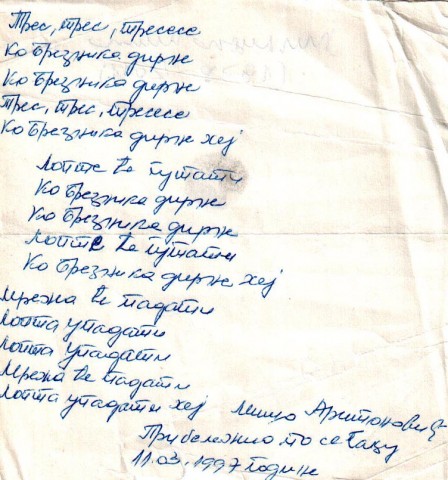 Трес, трес, тресесе
Ко Брезника дирне
Ко Брезника дирне
Трес, трес, тресесе
Ко Брезника дирне хеј
Лопте ће путати
Ко Брезника дирне
Ко Брезника дирне
Лопте ће путати
Ко Брезника дирне хеј
Мрежа ће падати
Лопта упадати
Лопта упадати
Мрежа ће падати
Лопта упадати хеј
Прибележио
11.03.1997 године